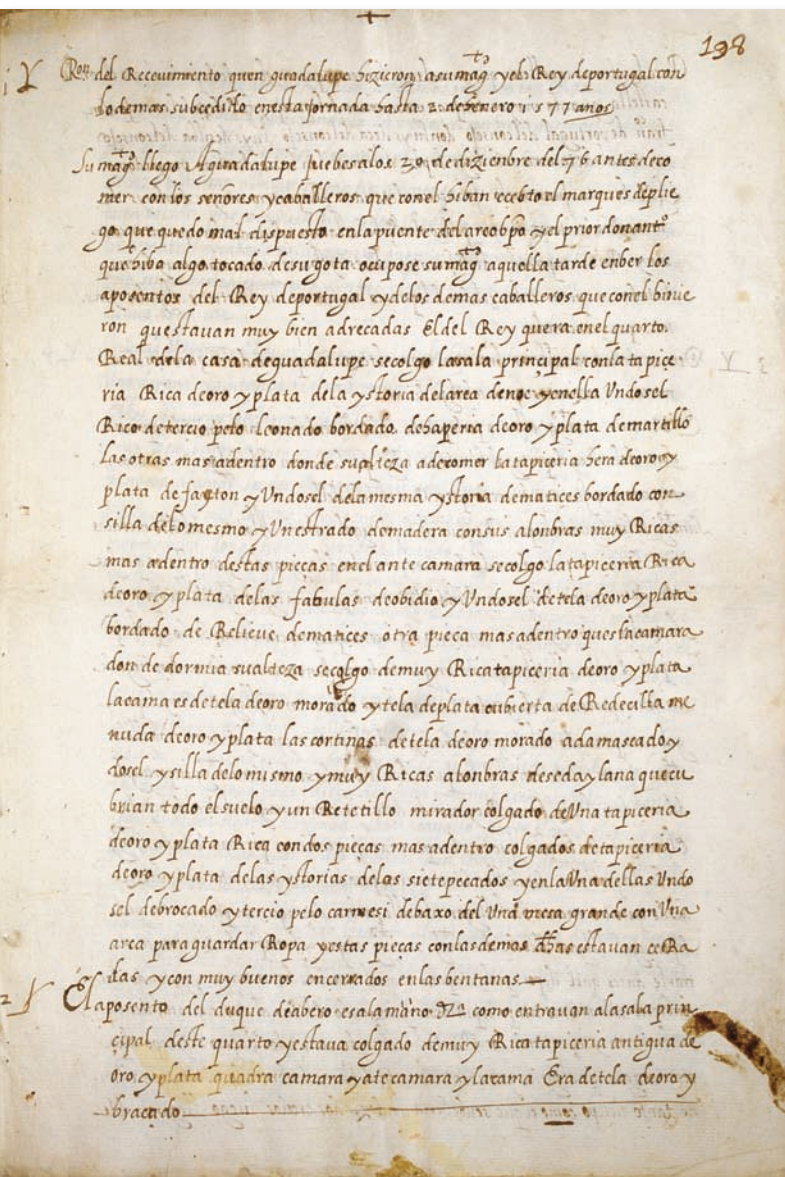 198
Ron del Recevimiento quen guadalupe hizieron asumagt yel Rey deportugal con
lodemas subcedido enesta jornada hasta 2 dehenero 1577 anos
Su magt llego Aguadalupe juebesalos 20 de dizienbre del 76 antes deco
mer con los señores ycaballeros que conel hiban ecebto el marques deplie
go que quedo mal dispuesto enlapuente delarcobpo yel prior donantº
que hiba algo tocado desugota ocupose sumagt aquella tarde enber los
aposentos del Rey deportugal ydelos demas caballeros queconel binie
ron questavan muy bien adrecadas El del Rey quera enel quarto
Real dela casa deguadalupe secolgo lasala principal conla tapice
ria Rica deoro yplata dela ystoria delarca denoe yenella Undosel
Rico detercio pelo leonado bordado dechaperia deoro yplata demartillo
Las otras mas adentro donde sualteza adecomer la tapiceria hera deoro y
plata de faeton yUndosel delamesma ystoria dematices bordado con
silla delomesmo yUnestrado demadera consus alonbras muy Ricas
mas adentro destas piecas enel ante camara secolgo latapiceria Rica
deoro yplata delas fabulas deobidio yUndosel detela deoro yplata
bordado de Relieve dematices otra pieca masadentro queslacamara
don de dormia sualteza secolgo demuy Ricatapiceria deoro yplata
lacama es detela deoro morado ytela deplata cubierta de Redecilla me
nuda deoro yplata las cortinas detela deoro morado adamascado y
dosel ysilla delo mismo ymuy Ricas alonbras deseda ylana quecu
brian todo elsuelo yun Retetillo mirador colgado deUna tapiceria
deoro yplata Rica condos piecas mas adentro colgados detapiceria
deoro yplata delas ystorias delos sietepecados yenlaUna dellas Undo
sel debrocado ytercio pelo carmesi debaxo del Una mesa grande con Una
arca para guardar Ropa yestas piecas conlasdemas dhas estavan ceRa
das ycon muy buenos encerados enlas bentanas
El aposento del duque deabero esala mano dra como entravan alasala prin
cipal deste quarto yestava colgado demuy Rica tapiceria antigua de
oro yplata quadra camara yatecamara ylacama Era detela deoro y
bracado